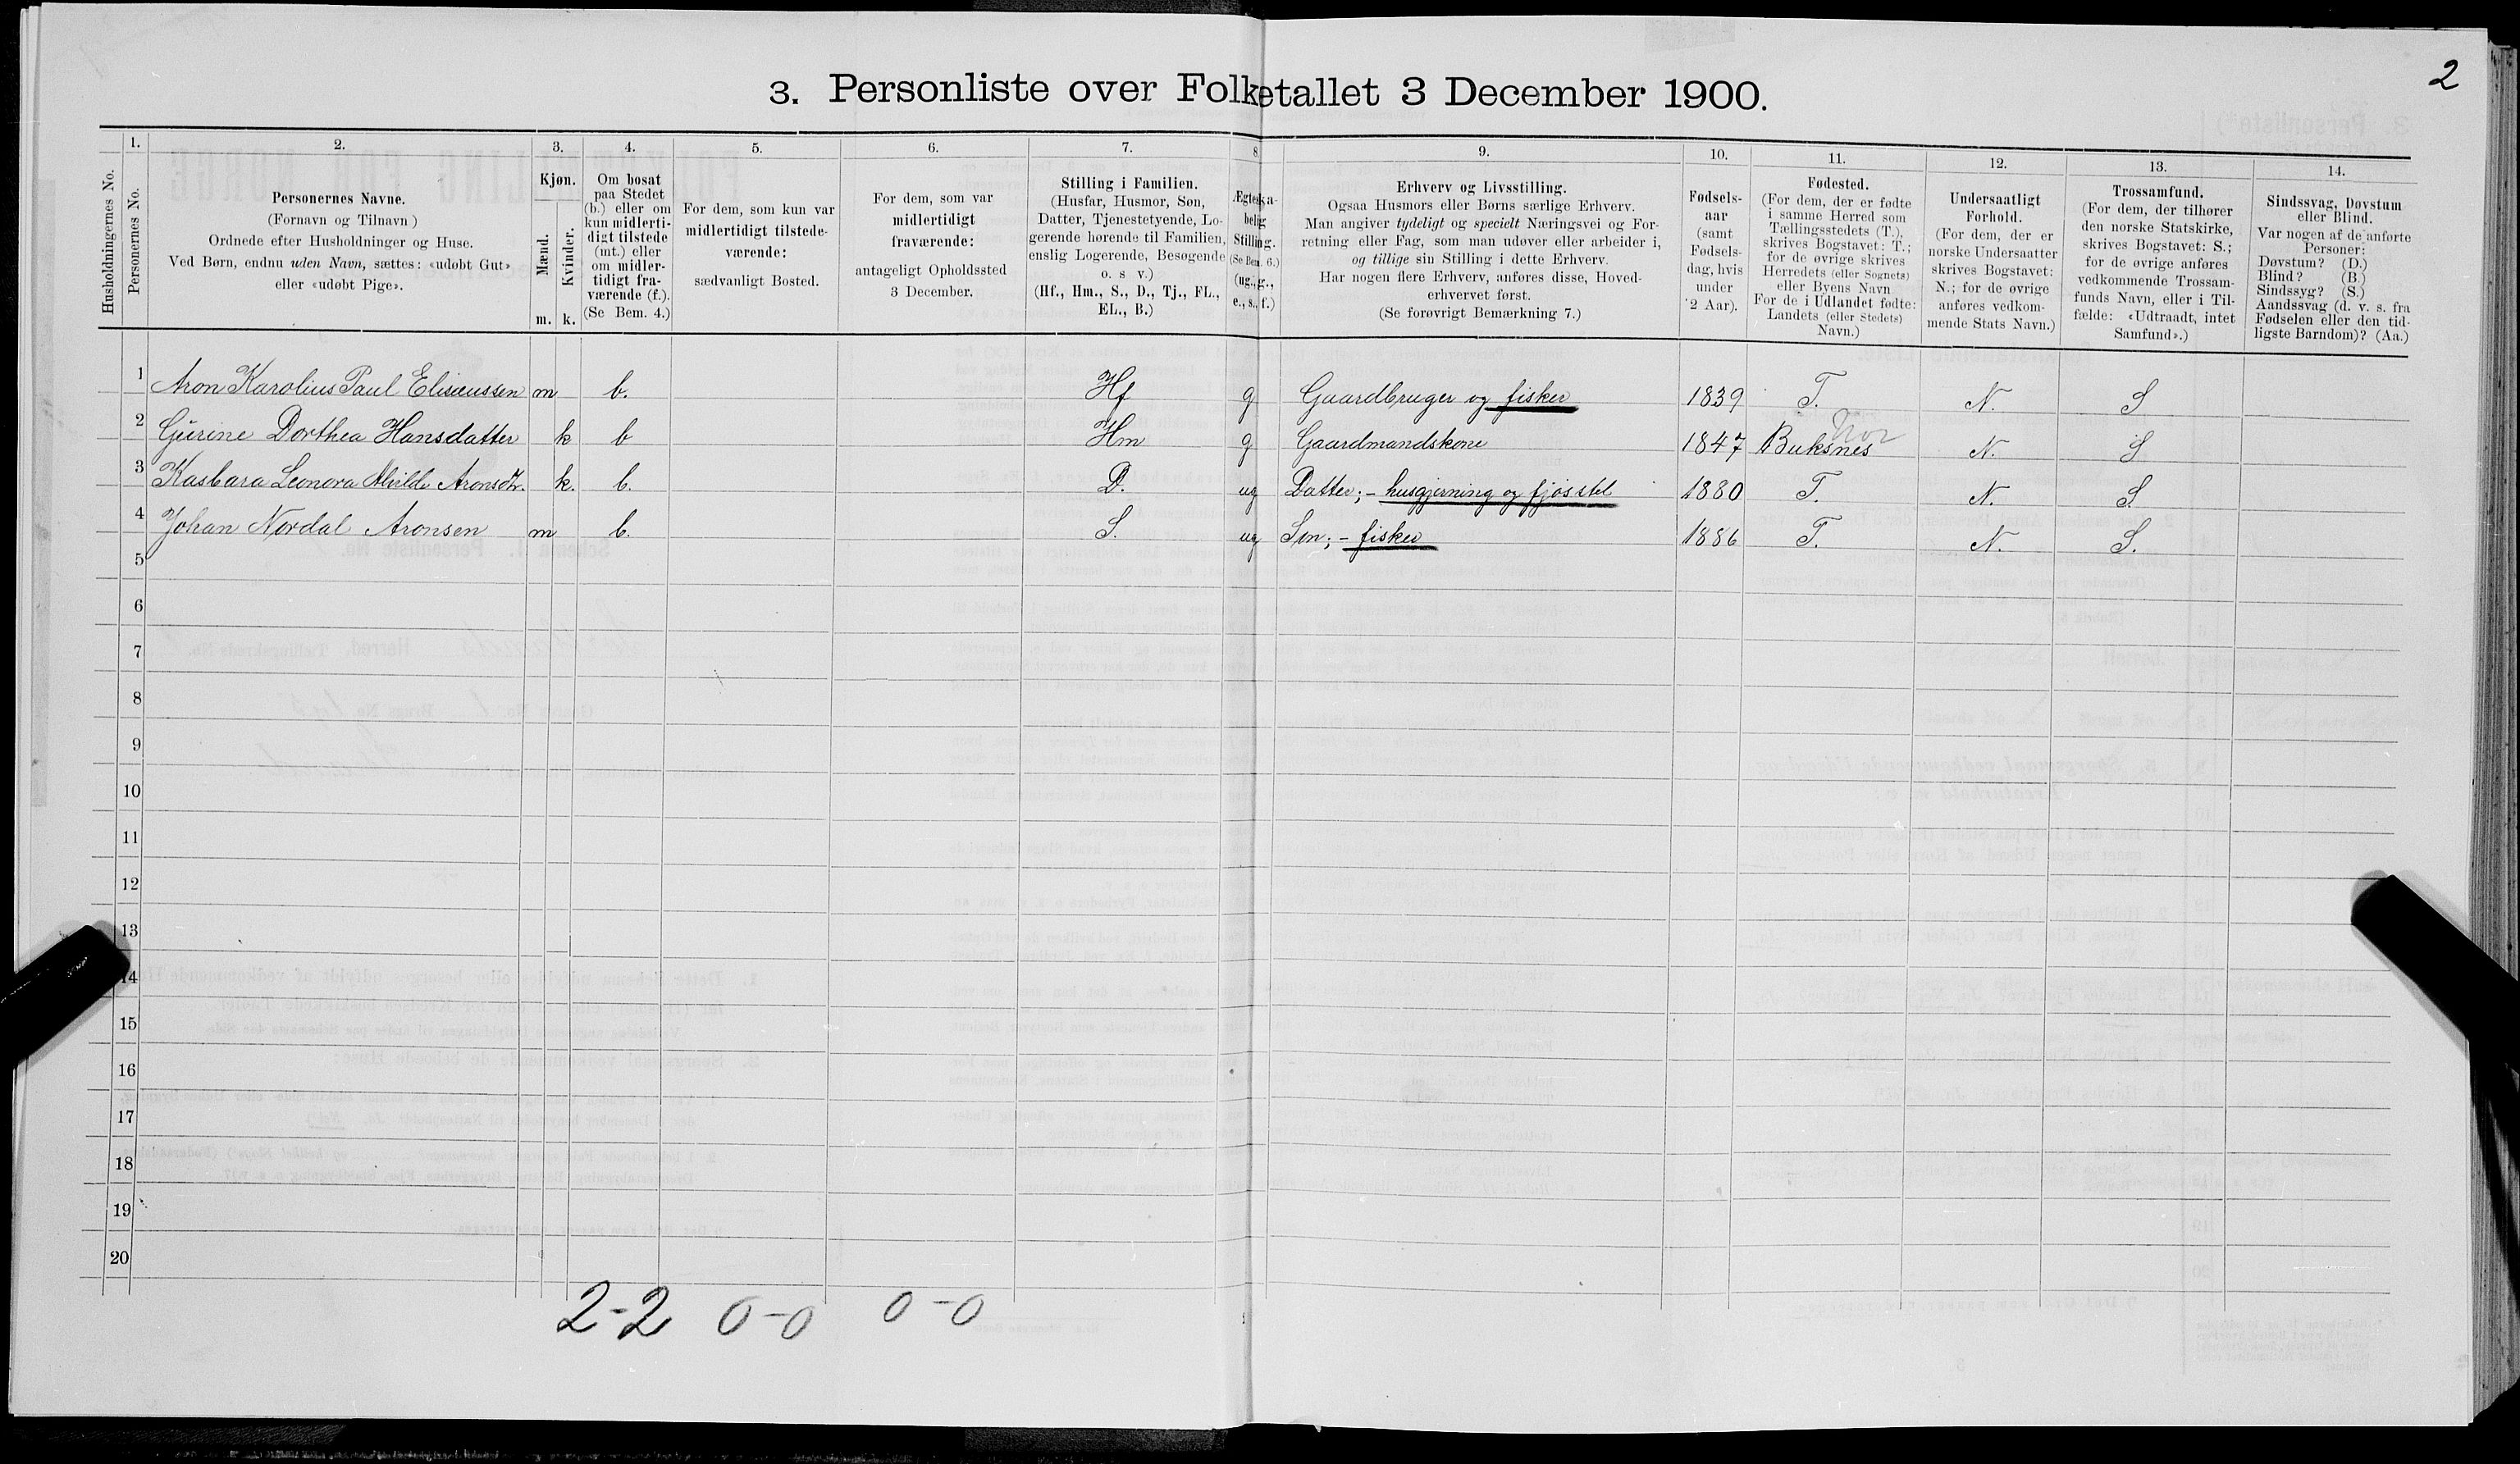 2
3. Personliste over Folketallet 3 December 1900.
1. 2. 3. 4. 5. 6. 7. 8. 9. 10. 11. 12. 13. 14.
Husholdningernes No.
Personernes No.
Personernes Navne.
(Fornavn og Tilnavn)
Ordnede efter Husholdninger og Huse.
Ved Børn, endnu uden Navn, sættes: «udøbt Gut»
eller «udøbt Pige».
Kjøn.
Mænd.
Kvinder.
m. k.
Om bosat
paa Stedet
(b.) eller om
kun midlerti-
digt tilstede
(mt.) eller
om midler-
tidigt fra-
værende (f.).
(Se Bem. 4.)
For dem, som kun var
midlertidigt tilstede-
værende:
sædvanligt Bosted.
For dem, som var
midlertidigt
fraværende:
antageligt Opholdssted
3 December.
Stilling i Familien.
(Husfar, Husmor, Søn,
Datter, Tjenestetyende, Lo-
gerende hørende til Familien,
enslig Logerende, Besøgende
o. s v.)
(Hf., Hm., S., D., Tj., FL.,
EL., B.)
Ægteska-
belig
Stilling.
(Se Bem. 6.)
(ug., g.,
e., s., f.)
Erhverv og Livsstilling.
Ogsaa Husmors eller Børns særlige Erhverv.
Man angiver tydeligt og specielt Næringsvei og For-
retning eller Fag, som man udøver eller arbeider i,
og tillige sin Stilling i dette Erhverv.
Har nogen flere Erhverv, anføres disse, Hoved-
erhvervet først.
(Se forøvrigt Bemærkning 7.)
Fødsels-
aar
(samt
Fødsels-
dag, hvis
under
2 Aar).
Fødested.
(For dem, der er fødte
i samme Herred som
Tællingsstedets (T.),
skrives Bogstavet: T.;
for de øvrige skrives
Herredets (eller Sognets)
eller Byens Navn
For de i Udlandet fødte:
Landets (eller Stedets)
Navn.)
Undersaatligt
Forhold.
(For dem, der er
norske Undersaatter
skrives Bogstavet:
N.; for de øvrige
anføres vedkom-
mende Stats Navn.)
Trossamfund.
(For dem, der tilhører
den norske Statskirke,
skrives Bogstavet: S.;
for de øvrige anføres
vedkommende Trossam-
funds Navn, eller i Til-
fælde: «Udtraadt, intet
Samfund».)
Sindssvag, Døvstum
eller Blind.
Var nogen af de anførte
Personer:
Døvstum? (D.)
Blind? (B.)
Sindssyg? (S.)
Aandssvag (d. v. s. fra
Fødselen eller den tid-
ligste Barndom)? (Aa.)
1 Aron Karolius Paul Elisæussen m b. Hf g Gaardbruger og fisker 1839 T. N. S
2 Gurine Dorthea Hansdatter k b Hm g Gaardmandskone 1847 Buksnes N. S
3 Kasbara Leonora Alvilde Aronsdtr. k. b. D. ug Datter; - husgjerning og fjøsstel 1880 T. N. S.
4 Johan Nordal Aronsen m b. S. ug Søn; - fisker 1886 T. N. S.
5
6
7
8
9
10
11
12
13
14
15
16
17
18
19
20
2-2 0-0 0-0